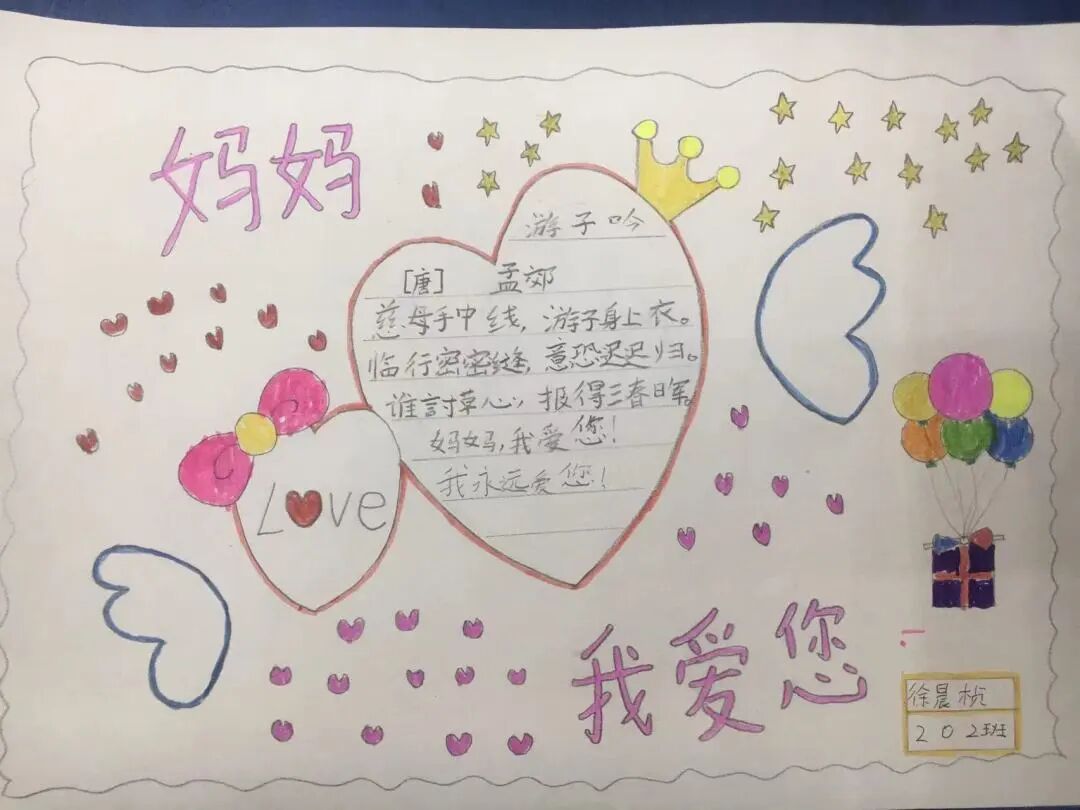 妈妈
游子吟
[唐] 孟郊
慈母手中线，游子身上衣。
临行密密缝，意恐迟迟归。
谁討草心，报得三春日军。
妈妈，我爱您！
我永远爱您！
Love
我爱您
徐晨桢
202班